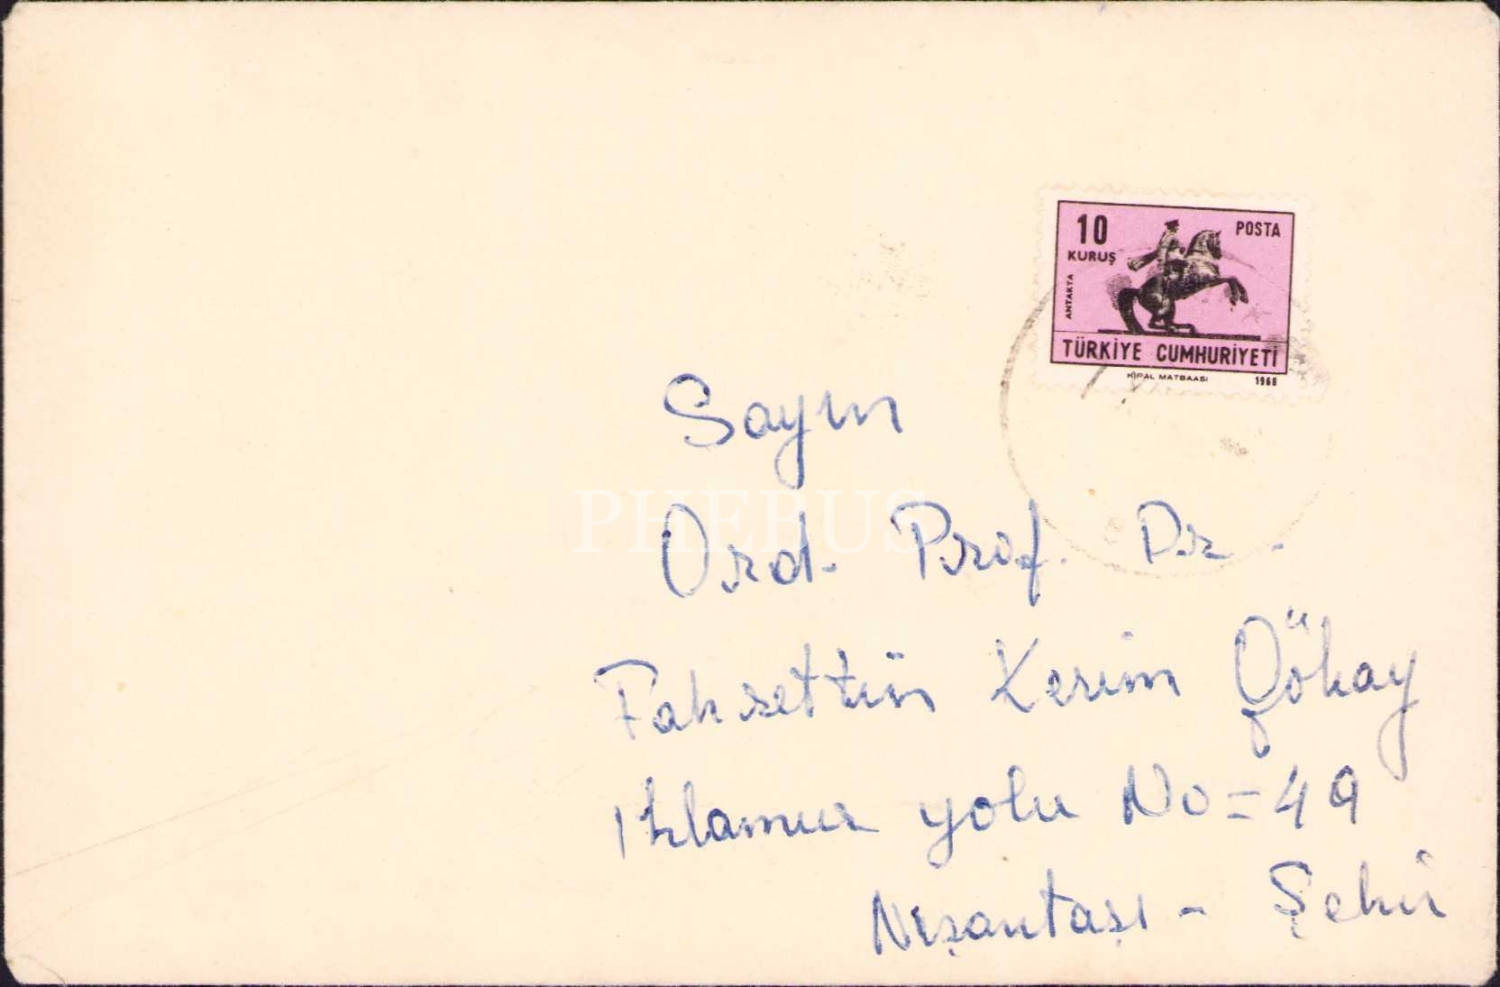 10 POSTA
KURUŞ
ANTAKYA
TÜRKİYE CUMHURİYETİ
KIRAL MATBAASI 1968
Sayın
PHEBUS
Ord. Prof. Dr.
Fahrettin Kerim Gökay
Ihlamur yolu No=49
Nişantaşı - Şehir